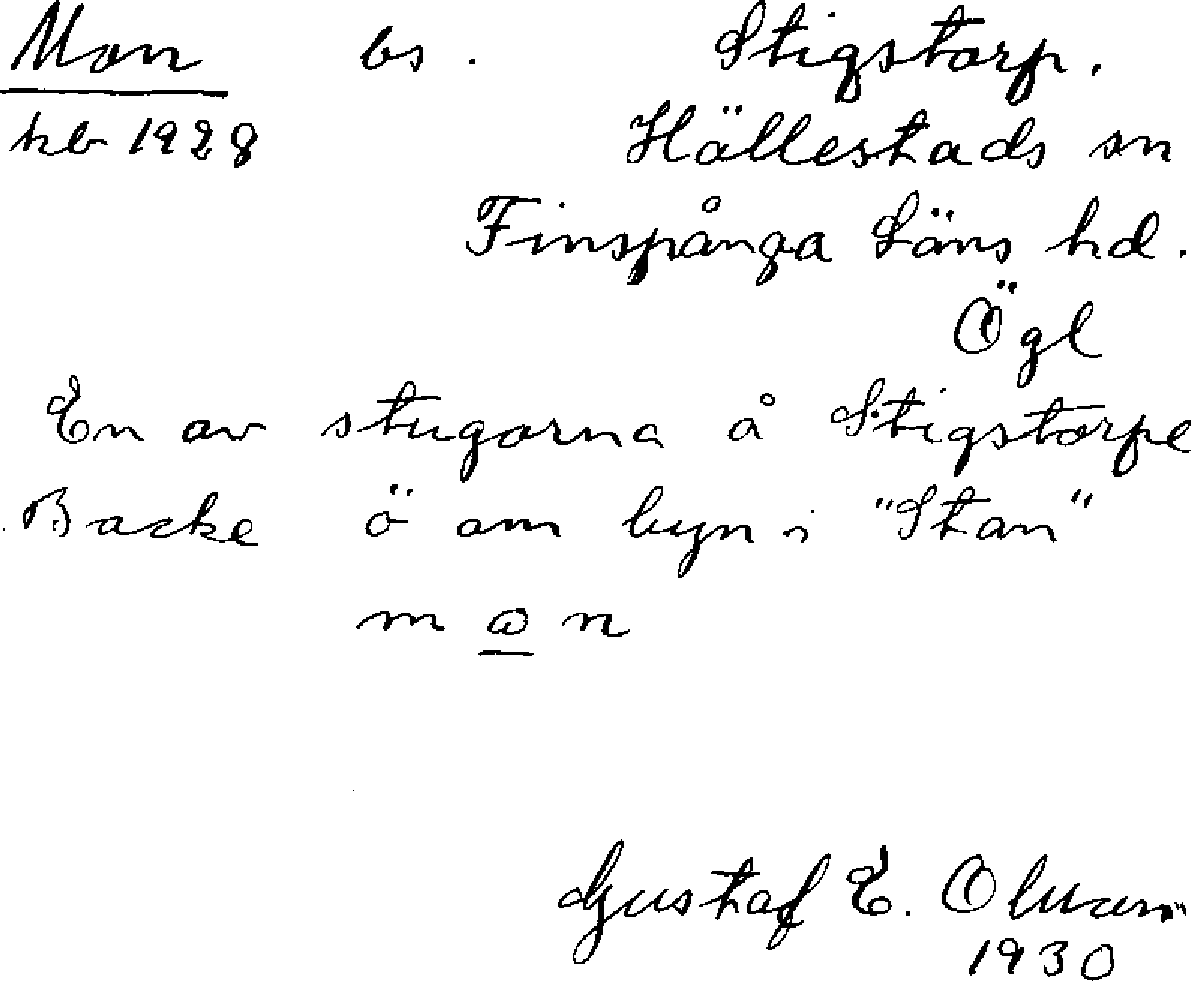 Mon bs. Stigstorp.
hb 1928 Hällestads sn
Finspånga Läns hd.
Ögl
En av stugorna å Stigstorpe
Backe ö om byn i "Stan"
m o n
Gustaf E.
1930